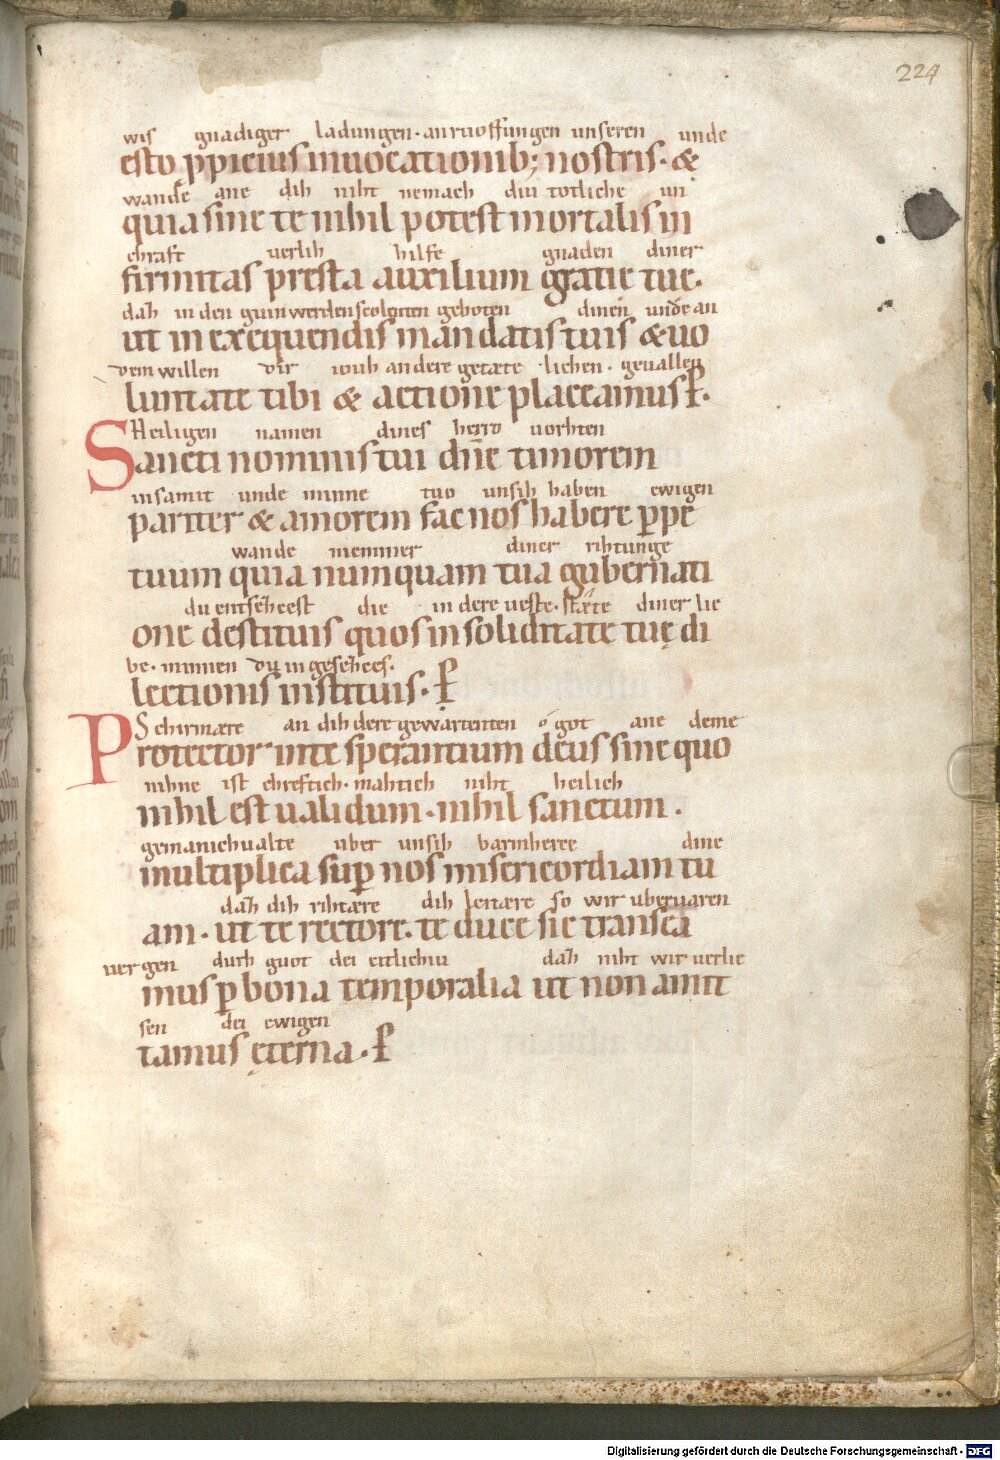 224
wis gnadiger ladungen· anruoffungen unseren unde
esto ppicius inuocationib; nostris· &
wande ane dih niht nemach diu totliche un
quia sine te nihil potest mortalis in
chraft uerlih hilfe gnaden diner
firmitas presta auxilium gratie tue·
daz in den zuin werden scolenten geboten dinen unde an
ut in exequendis mandatis tuis & uo
dem willen dir iouh andere getæte lichen· geuallen
luntate tibi & actione placeamus·
Heiligen namen dines herro uorhten
Sancti nominis tui dñe timorem
insamit unde minne tuo unsih haben ewigen
pariter & amorem fac nos habere ppe
wande niemmer diner rihtunge
tuum quia numquam tua gubernati
du entseheest die in dere ueste· stæte diner lie
one destituis quos in soliditate tuę di
be· minnen du in gesezhees·
lectionis instituis·
Schirmære an dih dere gewartenten o got ane deme
Protector in te sperantium deus sine quo
nihne ist chreftich· mahtich niht heilich
nihil est ualidum· nihil sanctum·
gemanichualte uber unsih barmherce dine
multiplica sup nos misericordiam tu
daz dih rihtære dih leitære so wir uberuaren
am· ut te rectore· te duce sic transea
uergen durh guot dei citlichiu daz niht wir uerlie
mus p bona temporalia ut non amit
sen dei ewigen
tamus ęterna·
Digitalisierung gefördert durch die Deutsche Forschungsgemeinschaft - DFG